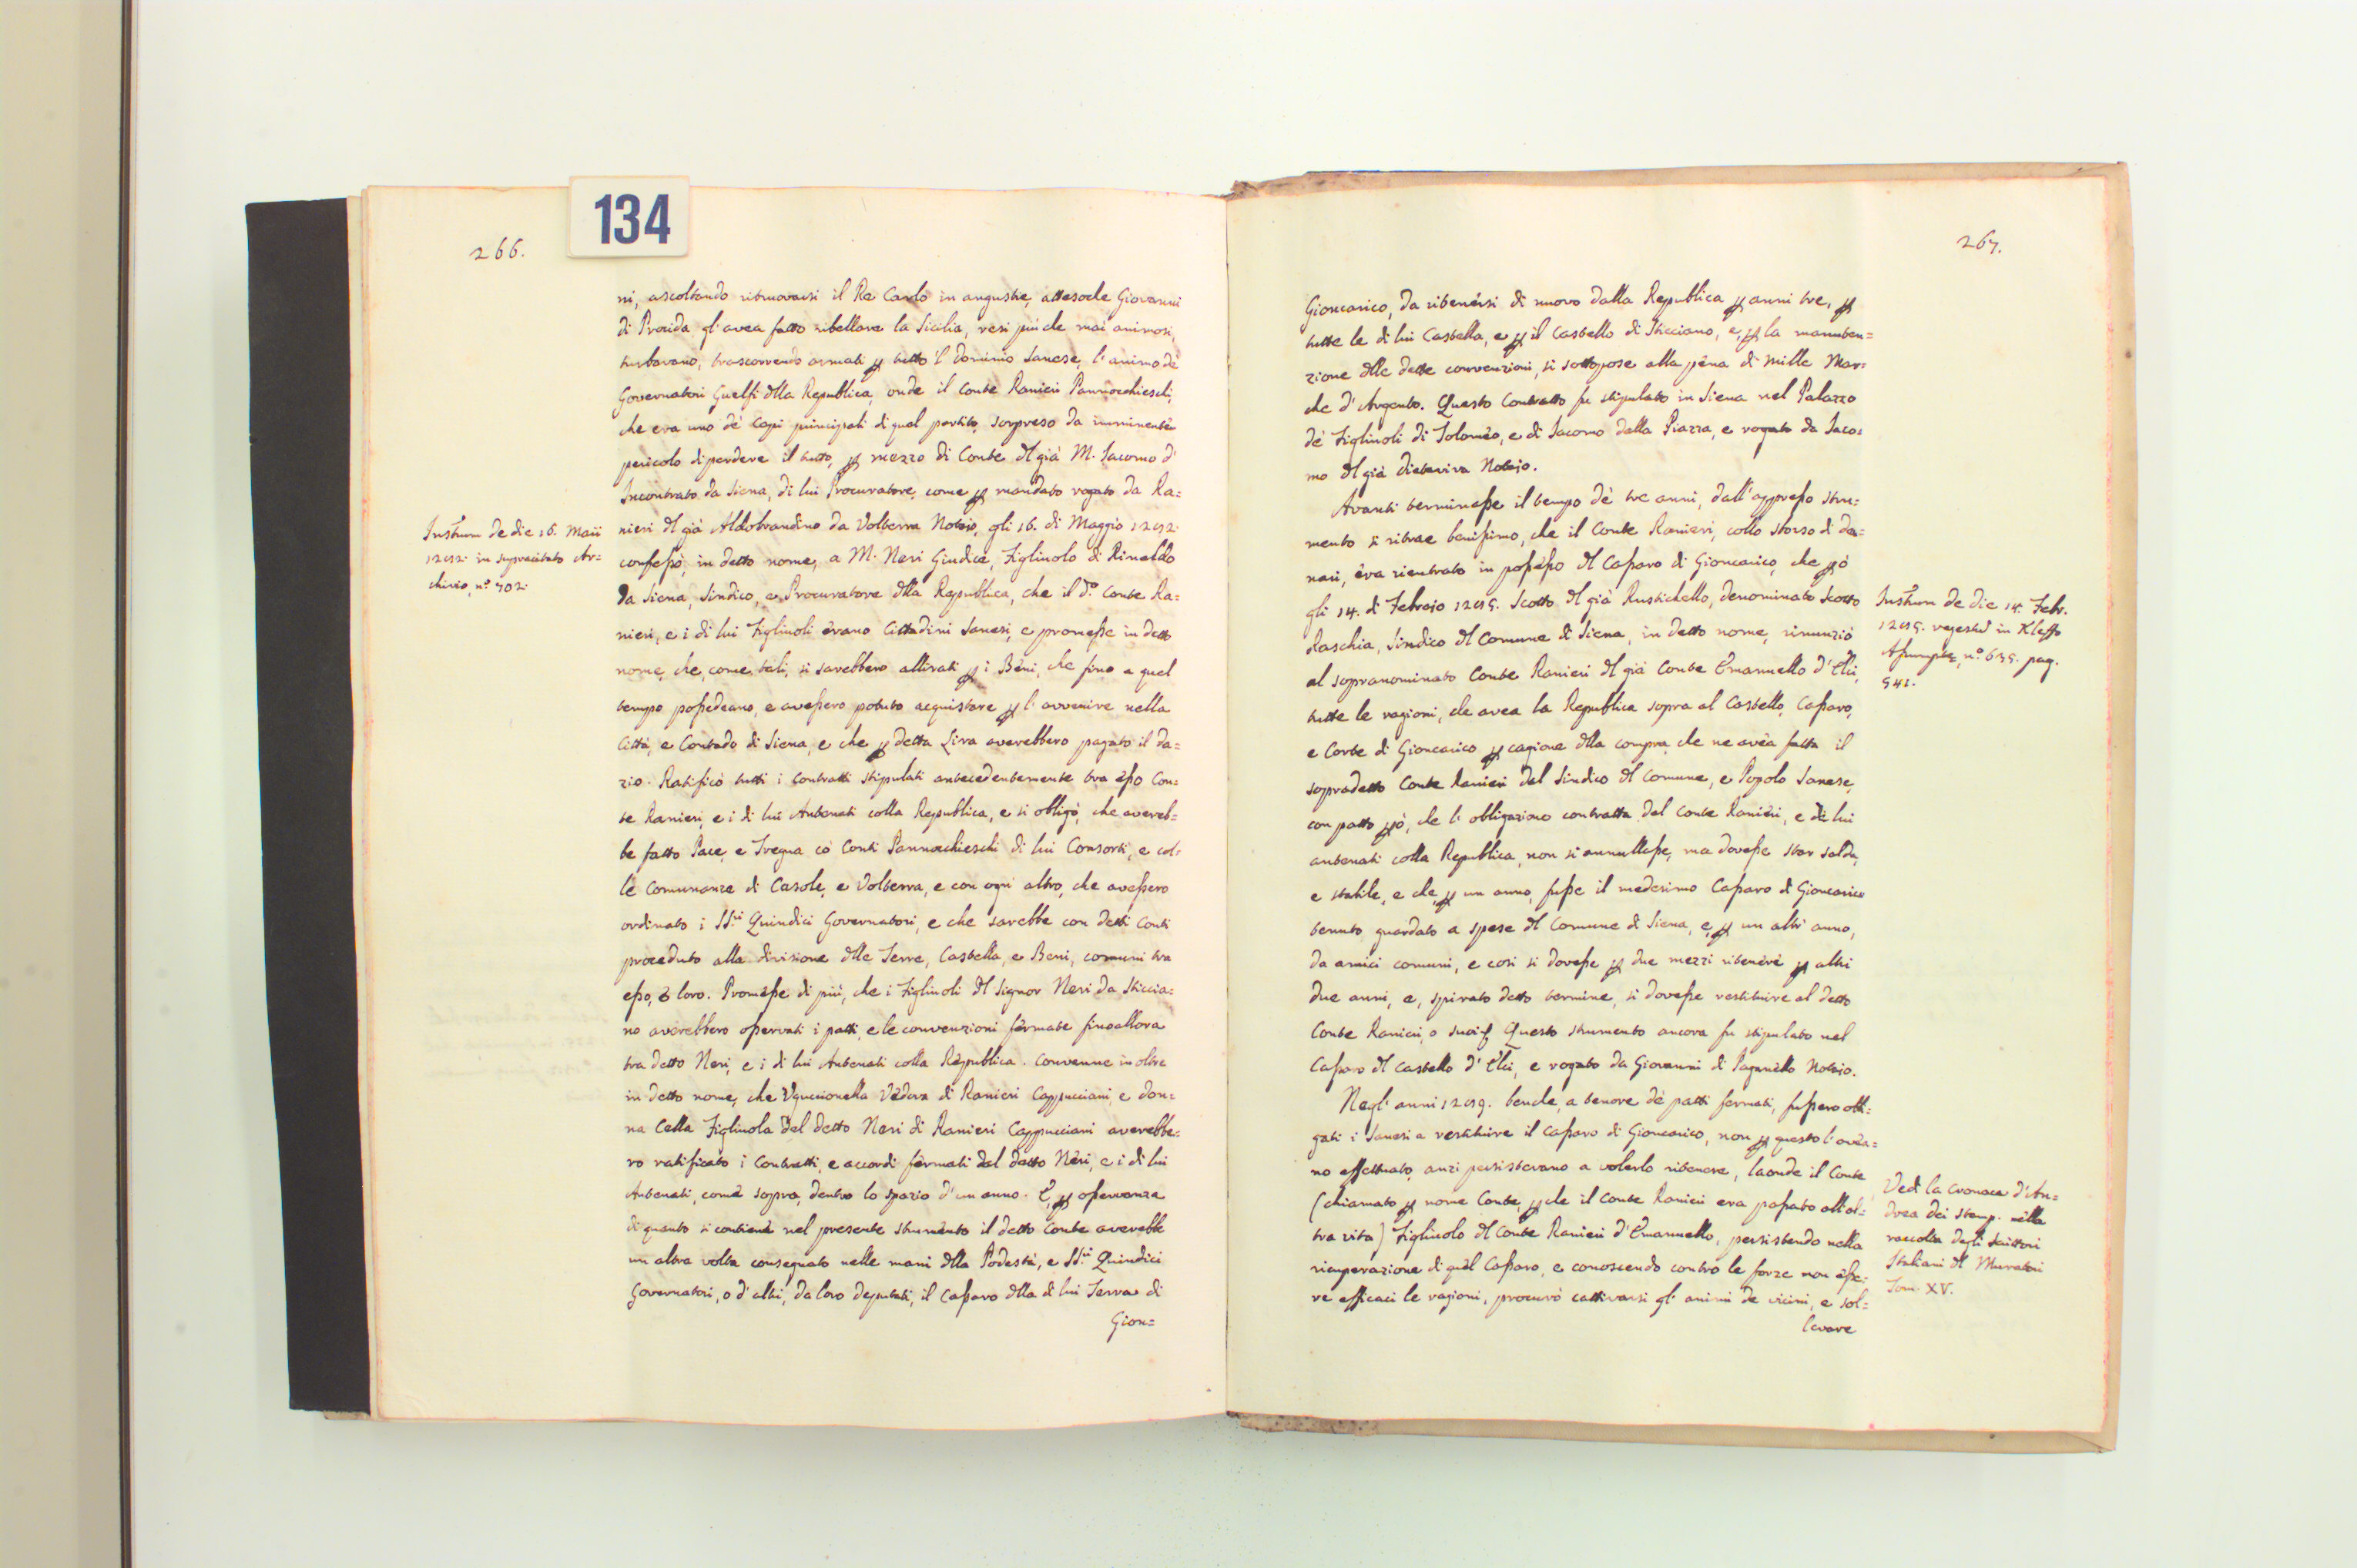 134
266.
ni, ascoltando ritruovarsi il Re Carlo in angustie, attesoche Giovanni
di Procida gl'avea fatto ribellare la Sicilia, resi più che mai animosi,
turbavano, trascorrendo armati ꝑ tutto 'l dominio Sanese, l'animo de'
Governatori Guelfi dlla Republica, onde il Conte Ranieri Pannocchieschi,
che era uno de' Capi principali di quel partito, sorpreso da imminente
pericolo di perdere il tutto, ꝑ mezzo di Conte dl già M. Iacomo d'
Incontrato da Siena, di lui Procuratore, come ꝑ mandato rogato da Ra=
nieri dl già Aldobrandino da Volterra Notaio, gli 16. di Maggio 1292.
confessò, in detto nome, a M. Neri Giudice, Figliuolo di Rinaldo
da Siena, Sindico, e Procuratore dlla Republica, che il do. Conte Ra=
nieri, e i di lui Figliuoli èrano Cittadini Sanesi, e promesse in detto
nome, che, come tali, si sarebbero allirati ꝑ i Beni, che fino a quel
tempo possedeano, e avessero potuto acquistare ꝑ l'avvenire nella
Città, e Contado di Siena, e che ꝑ detta Lira averebbero pagato il da=
zio. Ratificò tutti i contratti stipulati antecedentemente tra esso Con=
te Ranieri, e i di lui Antenati colla Republica, e si obligò, che avereb=
be fatto Pace, e Tregua co' Conti Pannocchieschi di lui Consorti, e col=
le Comunanze di Casole, e Volterra, e con ogni altro, che avessero
ordinato i SS.ri Quindici Governatori, e che sarebbe con detti Conti
proceduto alla divisione dlle Terre, Castella, e Beni, comuni tra
esso, e loro. Promesse di più, che i Figliuoli dl Signor Neri da Sticcia=
no averebbero osservati i patti, e le convenzioni fermate finoallora
tra detto Neri, e i di lui Antenati colla Republica. Convenne in oltre
in detto nome, che Uguccionella Vedova di Ranieri Cappucciani, e don=
na Cella Figliuola del detto Neri di Ranieri Cappucciani averebbe=
ro ratificato i Contratti, e accordi fermati dal detto Neri, e i di lui
Antenati, come sopra, dentro lo spazio d'un anno. E, ꝑ osservanza
di quanto si contiene nel presente strumento il detto Conte averebbe
un altra volta consegnato nelle mani dlla Podestà, e SS.ri Quindici
Governatori, o d'altri, da loro deputati, il Cassaro dlla di lui Terra di
Gion=
Instrum de die 16. Maii
1292. in supracitato Ar=
chivio, no. 702.
267.
Gioncarico, da ritenersi di nuovo dalla Republica ꝑ anni tre, ꝑ
tutte le di lui Castella, e ꝑ il Castello di Sticciano, e, ꝑ la manuten=
zione dlle dette convenzioni, si sottopose alla pena di mille Mar=
che d'Argento. Questo Contratto fu stipulato in Siena nel Palazzo
de' Figliuoli di Tolomeo, e di Iacomo della Piazza, e rogato da Iaco=
mo dl già Dietaviva Notaio.
Avanti terminasse il tempo de' tre anni, dall'appresso stru=
mento si ritrae benissimo, che il Conte Ranieri, collo sborso di da=
nari, era rientrato in possesso dl Cassaro di Gioncarico, che ꝑò
gli 14. di Febraio 1295. Scotto dl già Rustichello, denominato Scotto
Raschia, Sindico dl Comune di Siena, in detto nome, rinunziò
al sopranominato Conte Ranieri dl già Conte Emanuello d'Elci,
tutte le ragioni, che avea la Republica sopra al Castello, Cassaro,
e Corte di Gioncarico ꝑ cagione dlla compra, che ne avea fatta il
sopradetto Conte Ranieri dal Sindico dl Comune, e Popolo Sanese,
con patto ꝑò, che l'obligazione contratta dal Conte Ranieri, e di lui
antenati colla Republica, non si annullasse, ma dovesse star salda,
e stabile, e che, ꝑ un anno, fusse il medesimo Cassaro di Gioncarico
tenuto guardato a spese dl Comune di Siena, e, ꝑ un altr'anno,
da amici comuni, e così si dovesse ꝑ due mezzi ritenere ꝑ altri
due anni, e, spirato detto termine, si dovesse restituire al detto
Conte Ranieri, o suoi. Questo strumento ancora fu stipulato nel
Cassaro dl Castello d'Elci, e rogato da Giovanni di Paganello Notaio.
Negl'anni 1299. benche, a tenore de' patti fermati, fussero obli=
gati i Sanesi a restituire il Cassaro di Gioncarico, non ꝑ questo l'avea=
no effettuato, anzi persistevano a volerlo ritenere, laonde il Conte
(chiamato ꝑ nome Conte, ꝑche il Conte Ranieri era passato all'al=
tra vita) Figliuolo dl Conte Ranieri d'Emanuello, persistendo nella
ricuperazione di quel Cassaro, e conoscendo contro le forze non esse=
re efficaci le ragioni, procurò cattivarsi gl'animi de vicini, e sol=
levare
Instrum de die 14. Febr.
1295. registrat in Kleffo
Assumptae, no. 635. pag.
541.
Vedi la Cronaca d'An=
drea Dei stamp. nella
raccolta degli Scrittori
Italiani dl Muratori
Tom. XV.